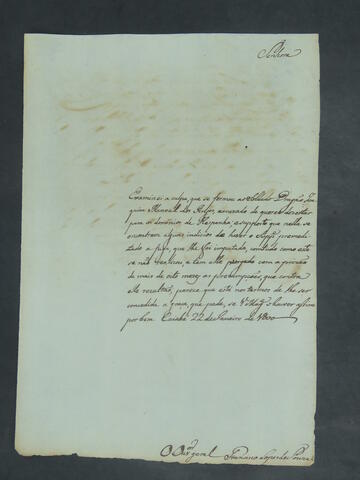 Senhora
Examinei a culpa, que se formou ao Soldado Dragão Joa
quim Manoel dos Reis, accuzado de querer dezertar
para os dominios de Hespanha, e suposto que nella se
encontrem alguns indicios de haver o mesmo premedi
tado a fuga, que lhe foi imputada, comtudo como esta
se não verificou, e tem elle purgado com a prizão
de mais de oito mezes as prezumpçoens, que contra
elle rezultão, parece que está nos termos de lhe ser
concedida a graça, que pede, se V. Mag. o houver assim
por bem. Cuiabá 22 de Janeiro de 1800
O Ouv.or geral Francisco Lopes de Souza